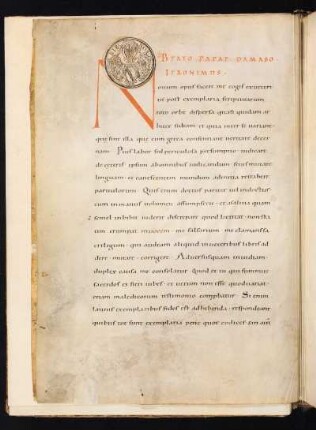 BEATO PAPAE DAMASO
IERONIMUS
Nouum opus facere me cogis ex ueteri
ut post exemplaria scripturarum
toto orbe dispersa quasi quidam ar
biter sedeam et quia inter se uariant
quae sint illa quae cum greca consentiant ueritate decer
nam Pius labor sed periculosa praesumptio iudicare
de ceteris ipsum ab omnibus iudicandum senis mutare
linguam et canescentem mundum ad initia retrahere
paruulorum Quis enim doctus pariter uel indoctus
cum in manus uolumen assumpserit et a saliua quam
semel inbibit uiderit discrepare quod lectitat non sta
tim erumpat in uocem me falsarium me clamans
sacrilegum qui audeam aliquid in ueteribus libris ad
dere mutare corrigere Aduersus quam inuidiam
duplex causa me consolatur quod et tu qui summus
sacerdos es fieri iubes et uerum non esse quod uariat
etiam maledicorum testimonio conprobatur Si enim
latinis exemplaribus fides est adhibenda respondeant
quibus tot sunt exemplaria pene quot codices